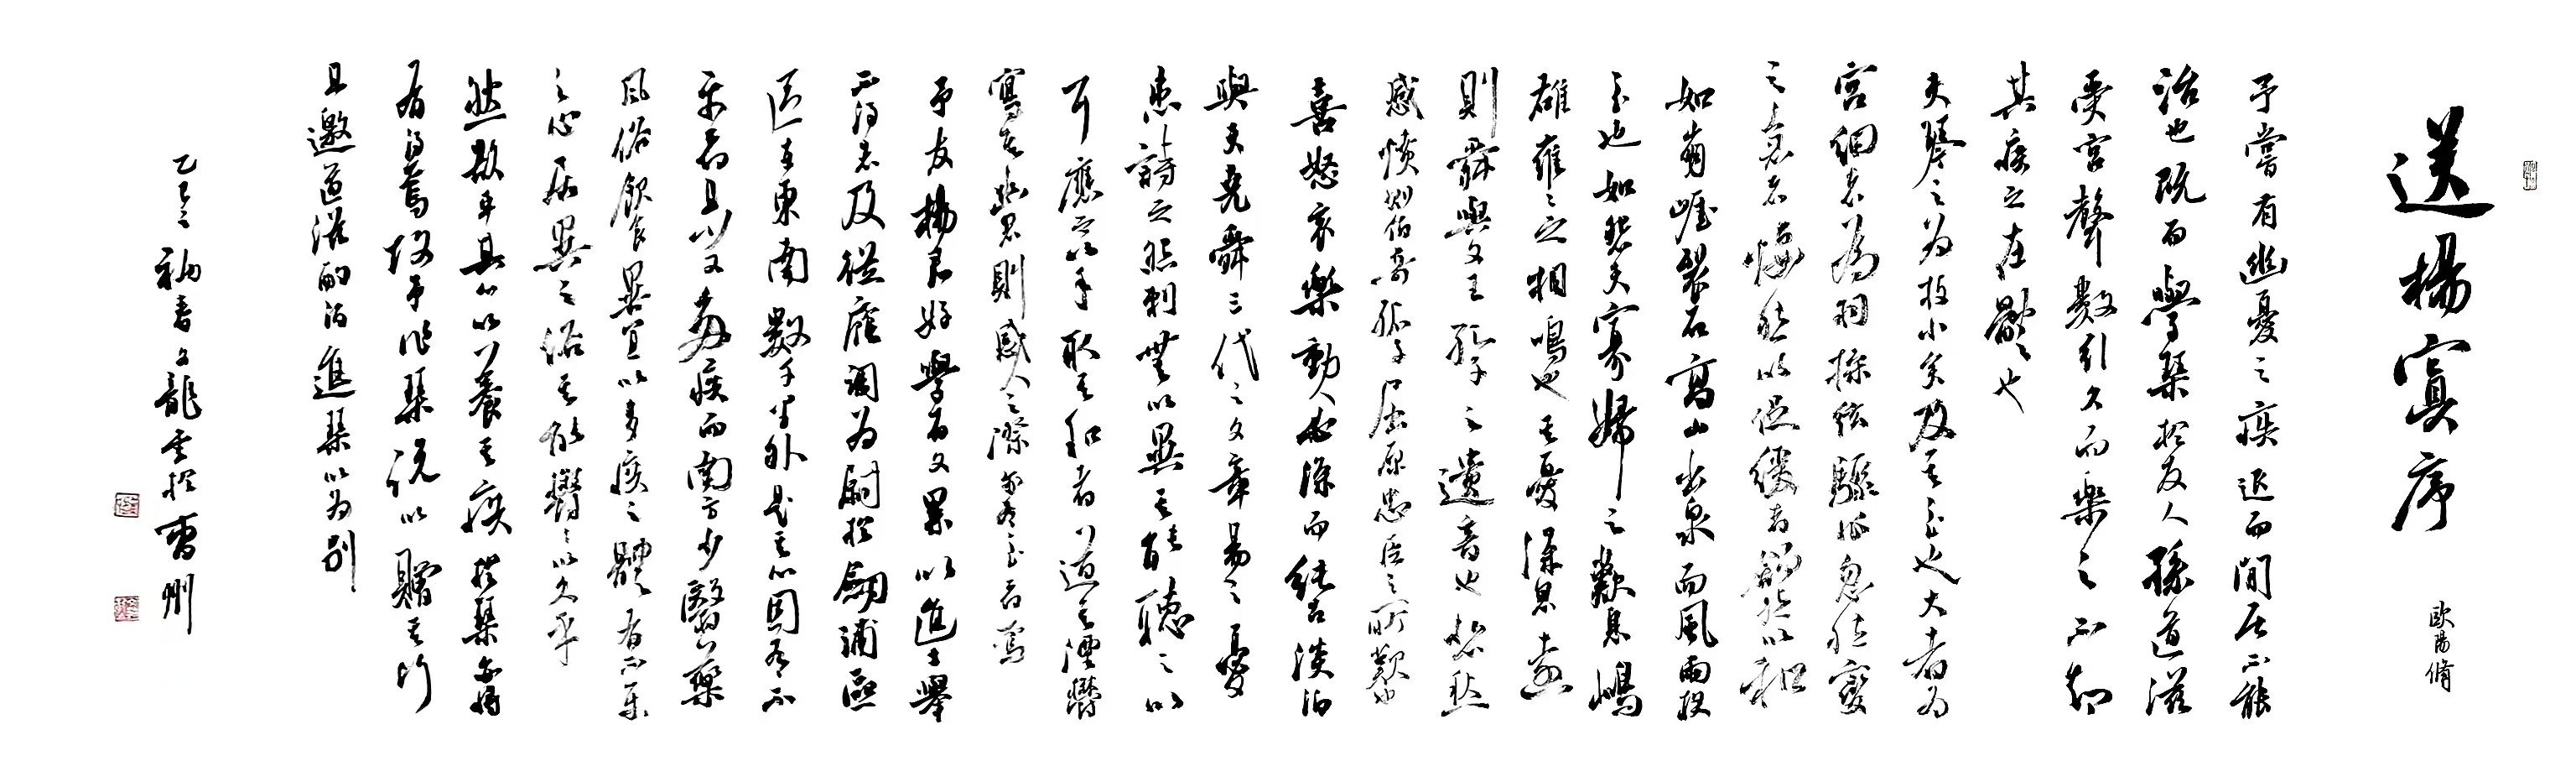 送楊寘序
歐陽脩
予嘗有幽憂之疾退而閒居不能
治也既而學琴於友人孫道滋
受宮聲數引久而樂之不知
其疾之在體也
夫琴之為技小矣及其至也大者為
宮細者為羽操絃驟作忽然變
之急者悽然以促緩者舒然以和
如崩崖裂石高山出泉而風雨夜
至也如怨夫寡婦之歎息
雌雄雍雍之相鳴也其憂深思遠
則舜與文王孔子之遺音也悲愁
感憤則伯奇孤子屈原忠臣之所歎也
喜怒哀樂動人必深而純古淡泊
與夫堯舜三代之文章易之憂
患詩之怨刺無以異其能聽之以
耳應之以手取其和者道其湮鬱
寫其幽思則感人之際亦有至者焉
予友楊君好學有文累以進士舉
不得志及從廕調為尉於劍浦區
區在東南數千里外是其心固有不
平者且少又多疾而南方少醫藥
風俗飲食異宜以多疾之體有不平
之心居異宜之俗其能鬱鬱以久乎
然欲平其心以養其疾於琴亦將
有得焉故予作琴說以贈其行
且邀道滋酌酒進琴以為別
乙巳之初春文龍書於雷州